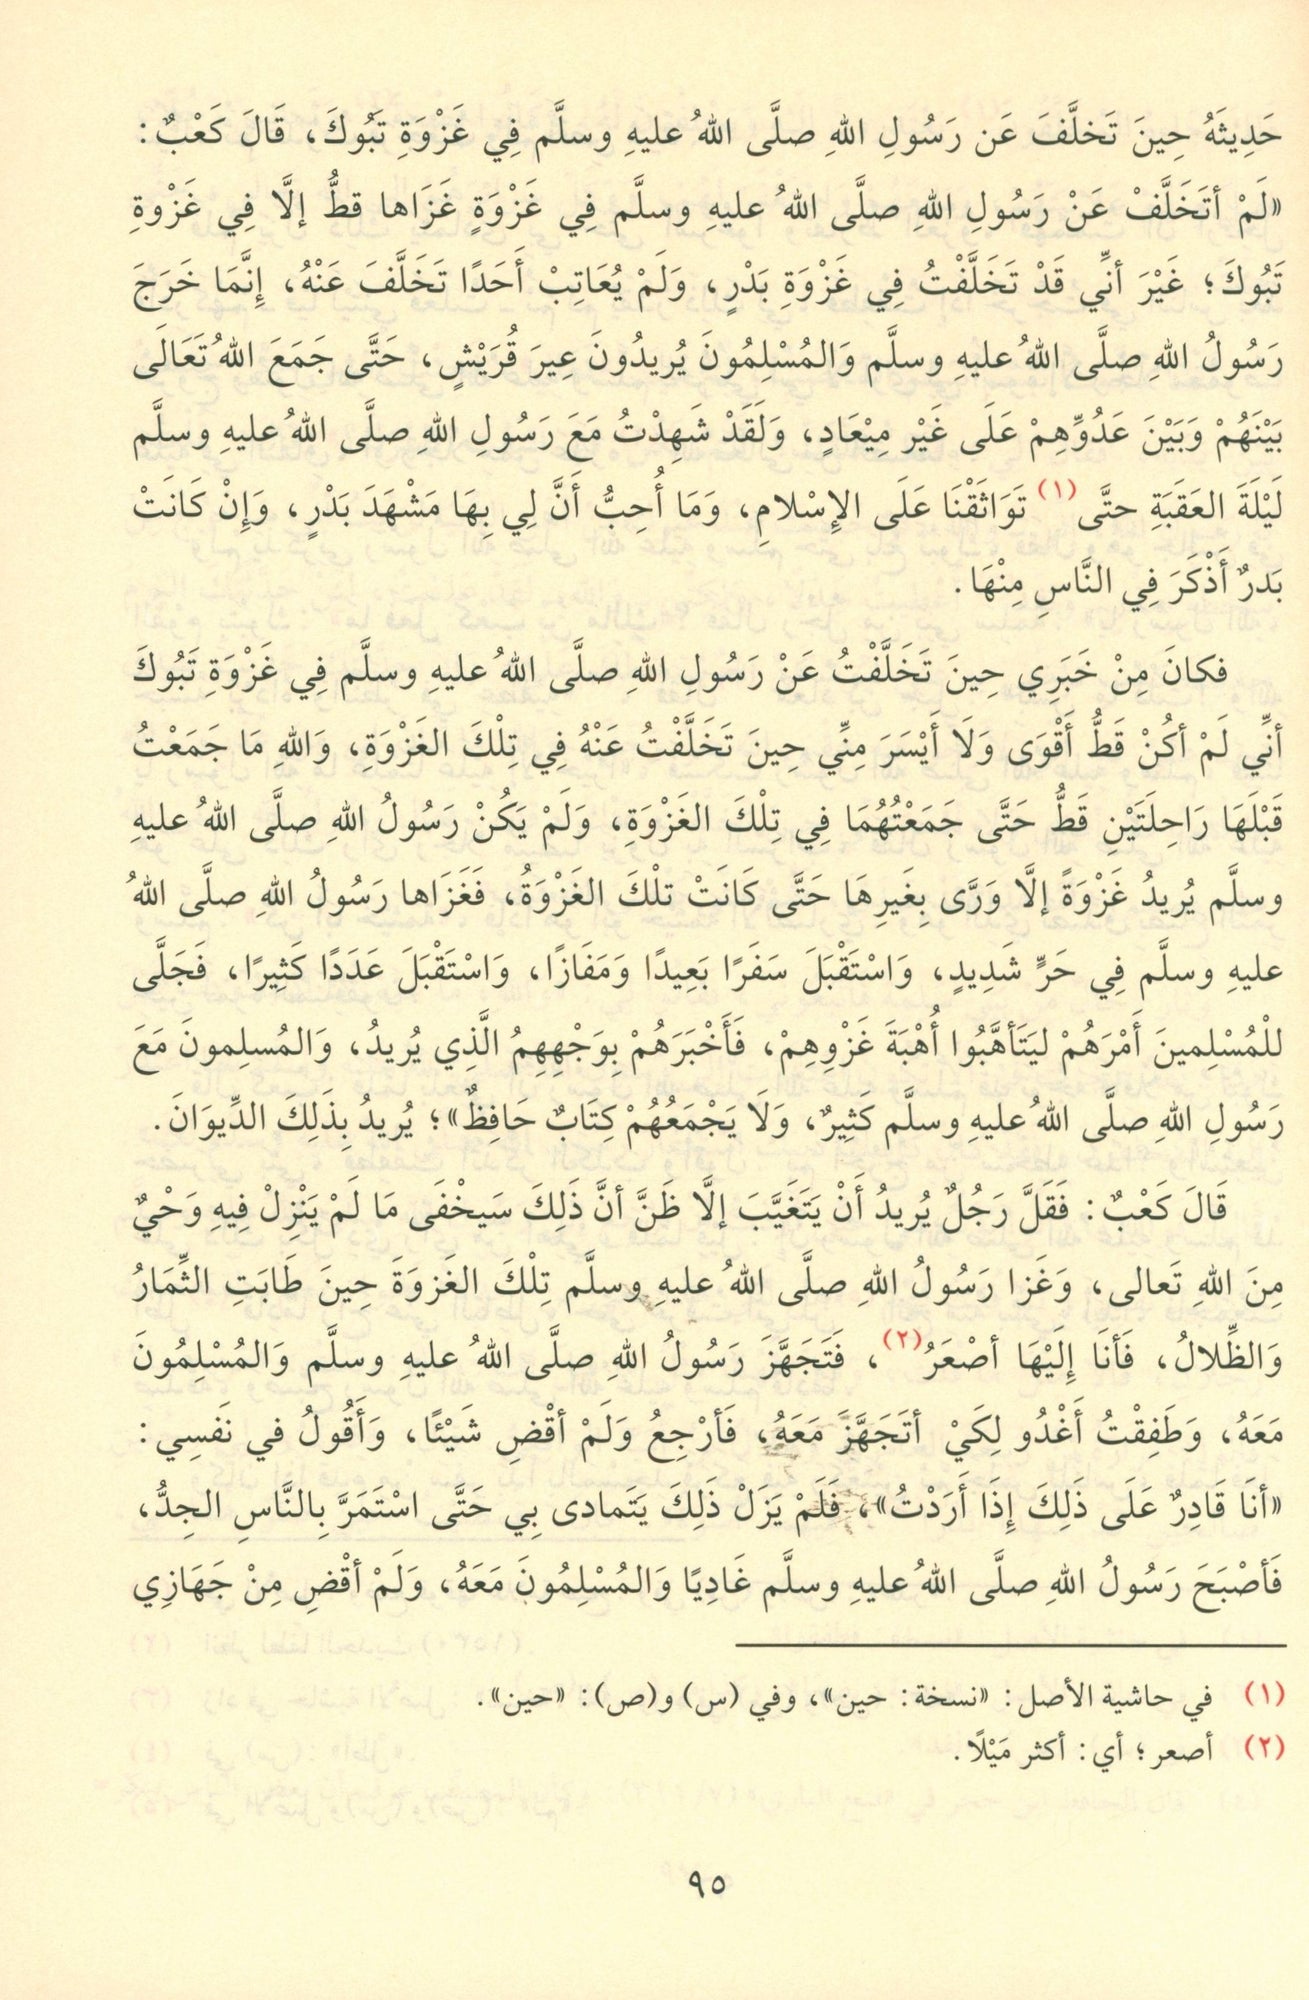 حَدِيثَهُ حِينَ تَخلَّفَ عَن رَسُولِ اللهِ صلَّى اللهُ عليهِ وسلَّم فِي غَزْوَةِ تَبُوكَ، قَالَ كَعْبٌ:
«لَمْ أتَخَلَّفْ عَنْ رَسُولِ اللهِ صلَّى اللهُ عليهِ وسلَّم فِي غَزْوَةٍ غَزَاها قطُّ إلَّا فِي غَزْوةِ
تَبُوكَ؛ غَيْرَ أنِّي قَدْ تَخَلَّفْتُ فِي غَزْوَةِ بَدْرٍ، وَلَمْ يُعَاتِبْ أَحَدًا تَخَلَّفَ عَنْهُ، إِنَّمَا خَرَجَ
رَسُولُ اللهِ صلَّى اللهُ عليهِ وسلَّم وَالمُسْلِمُونَ يُرِيدُونَ عِيرَ قُرَيْشٍ، حَتَّى جَمَعَ اللهُ تَعَالَى
بَيْنَهُمْ وَبَيْنَ عَدُوِّهِمْ عَلَى غَيْرِ مِيْعَادٍ، وَلَقَدْ شَهِدْتُ مَعَ رَسُولِ اللهِ صلَّى اللهُ عليهِ وسلَّم
لَيْلَةَ العَقَبَةِ حتَّى (١) تَوَاثَقْنَا عَلَى الإِسْلامِ، وَمَا أُحِبُّ أَنَّ لِي بِهَا مَشْهَدَ بَدْرٍ، وَإِنْ كَانَتْ
بَدرٌ أَذْكَرَ فِي النَّاسِ مِنْهَا.
فكانَ مِنْ خَبَرِي حِينَ تَخَلَّفْتُ عَنْ رَسُولِ اللهِ صلَّى اللهُ عليهِ وسلَّم فِي غَزْوَةِ تَبُوكَ
أنِّي لَمْ أكُنْ قَطُّ أَقْوَى وَلَا أَيْسَرَ مِنِّي حِينَ تَخَلَّفْتُ عَنْهُ فِي تِلْكَ الغَزْوَةِ، وَاللهِ مَا جَمَعْتُ
قَبْلَهَا رَاحِلَتَيْنِ قَطُّ حَتَّى جَمَعْتُهُمَا فِي تِلْكَ الغَزْوَةِ، وَلَمْ يَكُنْ رَسُولُ اللهِ صلَّى اللهُ عليهِ
وسلَّم يُرِيدُ غَزْوَةً إلَّا وَرَّى بِغَيرِهَا حَتَّى كَانَتْ تلْكَ الغَزْوَةُ، فَغَزَاها رَسُولُ اللهِ صلَّى اللهُ
عليهِ وسلَّم فِي حَرٍّ شَدِيدٍ، وَاسْتَقْبَلَ سَفَرًا بَعِيدًا وَمَفَازًا، وَاسْتَقْبَلَ عَدَدًا كَثِيرًا، فَجَلَّى
للْمُسْلِمينَ أَمْرَهُمْ ليَتَأهَّبُوا أُهْبَةَ غَزْوِهِمْ، فَأَخْبَرَهُمْ بِوَجْهِهِمُ الَّذِي يُرِيدُ، وَالمُسلِمونَ مَعَ
رَسُولِ اللهِ صلَّى اللهُ عليهِ وسلَّم كَثِيرٌ، وَلَا يَجْمَعُهُمْ كِتَابٌ حَافِظٌ»؛ يُرِيدُ بِذَلِكَ الدِّيوَانَ.
قَالَ كَعْبٌ: فَقَلَّ رَجُلٌ يُرِيدُ أَنْ يَتَغَيَّبَ إلَّا ظَنَّ أنَّ ذَلِكَ سَيخْفَى مَا لَمْ يَنْزِلْ فِيهِ وَحْيٌ
مِنَ اللهِ تَعالى، وَغَزا رَسُولُ اللهِ صلَّى اللهُ عليهِ وسلَّم تِلْكَ الغَزوَةَ حِينَ طَابَتِ الثِّمَارُ
وَالظِّلالُ، فَأنَا إِلَيْهَا أصْعَرُ(٢)، فَتَجَهَّزَ رَسُولُ اللهِ صلَّى اللهُ عليهِ وسلَّم وَالمُسْلِمُونَ
مَعَهُ، وَطَفِقْتُ أَغْدُو لِكَيْ أتَجَهَّزَ مَعَهُ، فَأرْجِعُ وَلَمْ أقْضِ شَيْئًا، وَأَقُولُ في نَفَسِي:
«أنَا قَادِرٌ عَلَى ذَلِكَ إِذَا أَرَدْتُ»، فَلَمْ يَزَلْ ذَلِكَ يَتَمادى بِي حَتَّى اسْتَمَرَّ بِالنَّاسِ الجِدُّ،
فَأصْبَحَ رَسُولُ اللهِ صلَّى اللهُ عليهِ وسلَّم غَادِيًا وَالمُسْلِمُونَ مَعَهُ، وَلَمْ أقْضِ مِنْ جَهَازِي
(١) في حاشية الأصل: «نسخة: حين»، وفي (س) و(ص): «حين».
(٢) أصعر؛ أي: أكثر مَيْلًا.
٩٥